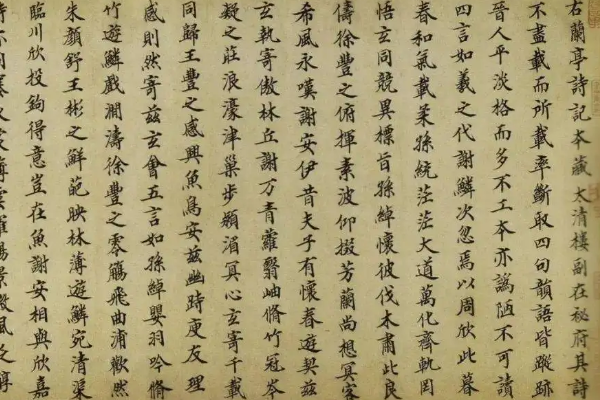 右蘭亭詩記本藏太清樓副在秘府其詩
不盡載而所載率斷取四句韻語皆蹤跡
晉人平淡格而多不工本亦譌陋不可讀
四言如羲之代謝鱗次忽焉以周欣此暮
春和氣載柔孫統茫茫大道萬化齊軌罔
悟玄同競異標旨孫綽懷彼伐木肅此良
儔徐豐之俯揮素波仰掇芳蘭尚想冥客
希風永嘆謝安伊昔夫子有懷春遊契茲
玄執寄傲林丘謝万青蘿翳岫脩竹冠岑
凝之莊浪濠津巢步潁湄冥心玄寄千載
同歸王豐之感興魚鳥安茲幽峙庾友理
感則然寄茲玄會五言如孫綽嬰羽吟脩
竹遊鱗戲瀾濤徐豐之零觴飛曲浦歡然
朱顏舒王彬之鮮葩映林薄遊鱗宛清渠
臨川欣投鉤得意豈在魚謝安相與欣嘉